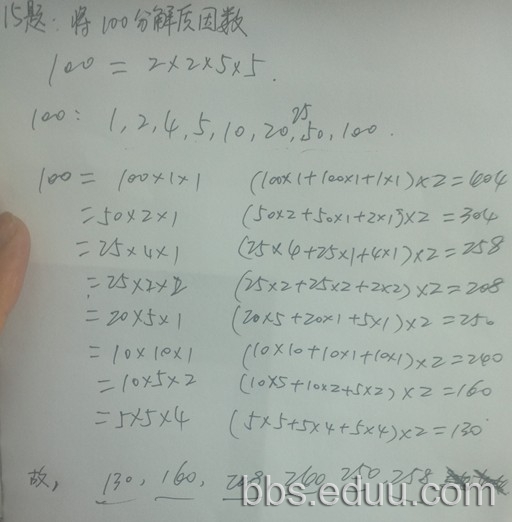 15题: 将100分解质因数
100 = 2×2×5×5.
25
100: 1, 2, 4, 5, 10, 20, 50, 100.
100 = 100×1×1 (100×1+100×1+1×1)×2=404
=50×2×1 (50×2+50×1+2×1)×2=304
=25×4×1 (25×4+25×1+4×1)×2=258
=25×2×2 (25×2+25×2+2×2)×2=208
=20×5×1 (20×5+20×1+5×1)×2=250
=10×10×1 (10×10+10×1+10×1)×2=240
=10×5×2 (10×5+10×2+5×2)×2=160
=5×5×4 (5×5+5×4+5×4)×2=130
故, 130, 160, 250 258
bbs.eduu.com